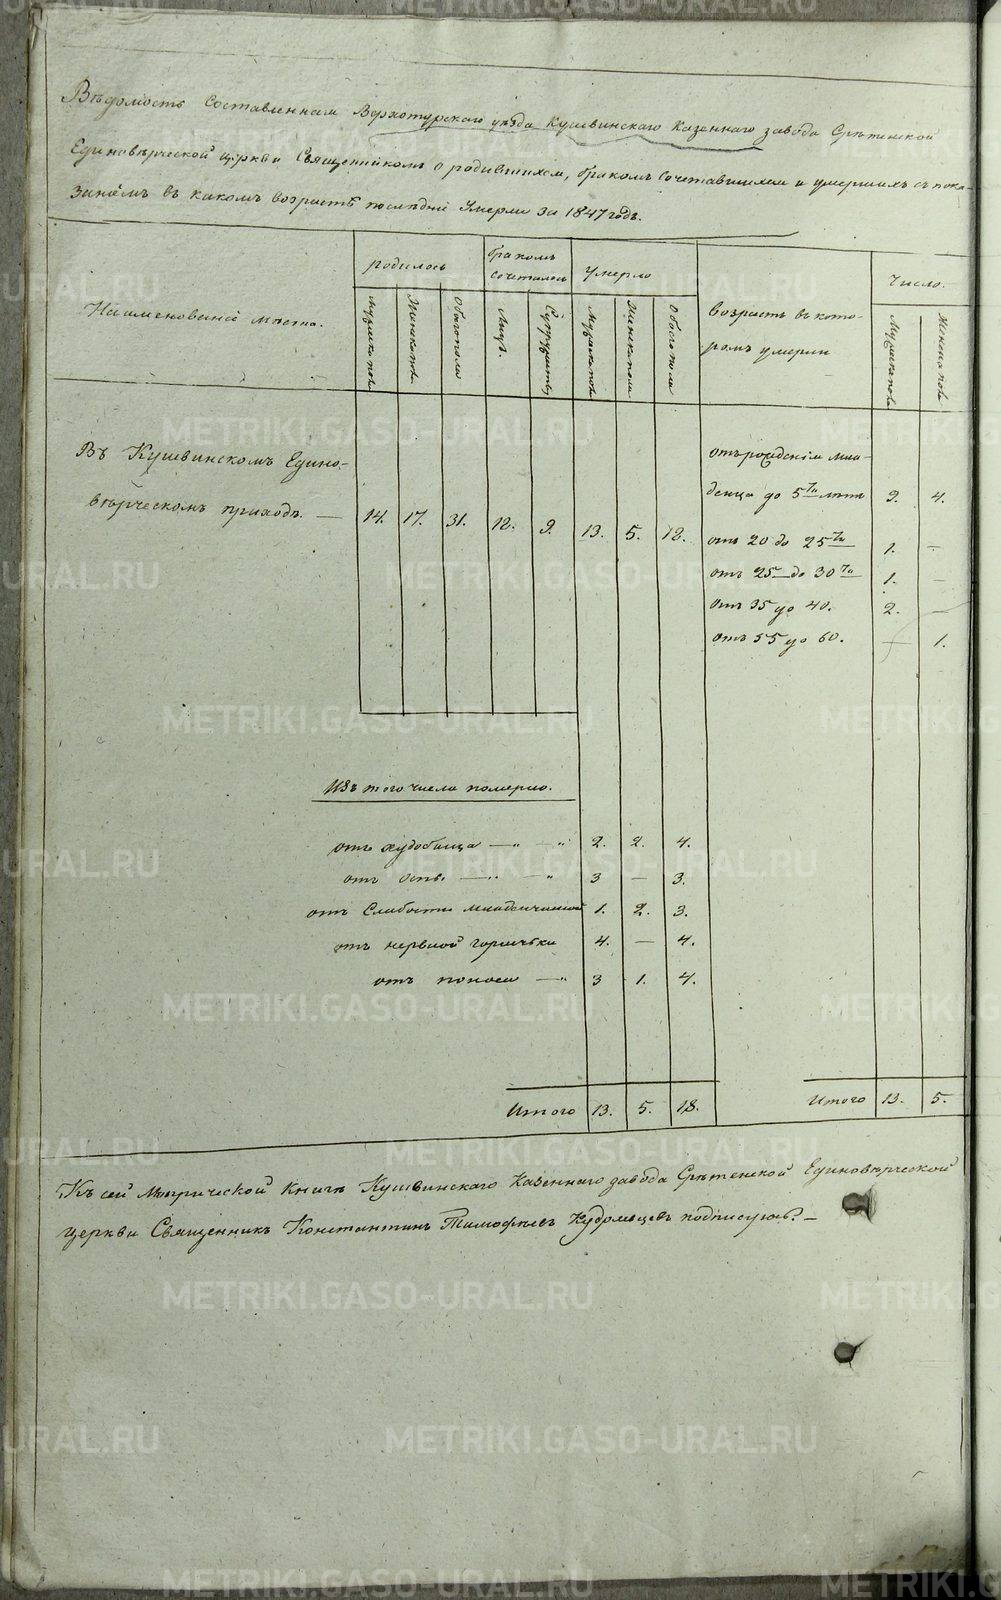 Вѣдомость Составленная Верхотурскаго уѣзда Кушвинскаго Казеннаго завода Срѣтенской
Единовѣрческой церкви Священникомъ о родившихся, бракомъ сочетавшихся и умершихъ съ пока-
заніемъ въ какомъ возрастѣ послѣдніе Умерли за 1847 годъ.
Наименованіе мѣста.
родилось
бракомъ сочеталось
умерло
возрастъ въ кото-
ромъ умерли
Число.
Мужска пола
Женска пола
Обоего пола
Лицъ.
Супружествъ
Мужска пола
Женска пола
Обоего пола
Мужска пола
Женска пола
Въ Кушвинскомъ Едино-
вѣрческомъ приходѣ. — 14. 17. 31. 18. 9. 13. 5. 18.
отъ рожденія мла-
денца до 5ти лѣтъ 9. 4.
отъ 20 до 25ти 1. —
отъ 25 до 30ти 1. —
отъ 35 до 40. 2. —
отъ 55 до 60. — 1.
Изъ того числа померло.
отъ худобища — „ — „ 2. 2. 4.
отъ оспы — „ — „ 3 — 3.
отъ Слабости младенческой 1. 2. 3.
отъ нервной горячьки 4. — 4.
отъ поноса — „ 3 1. 4.
Итого 13. 5. 18.
Итого 13. 5.
Къ сей Метрической книгѣ Кушвинскаго Казеннаго завода Срѣтенской Единовѣрческой
церкви Священникъ Константинъ Тимофѣевъ подписуюсь. —
METRIKI.GASO-URAL.RU